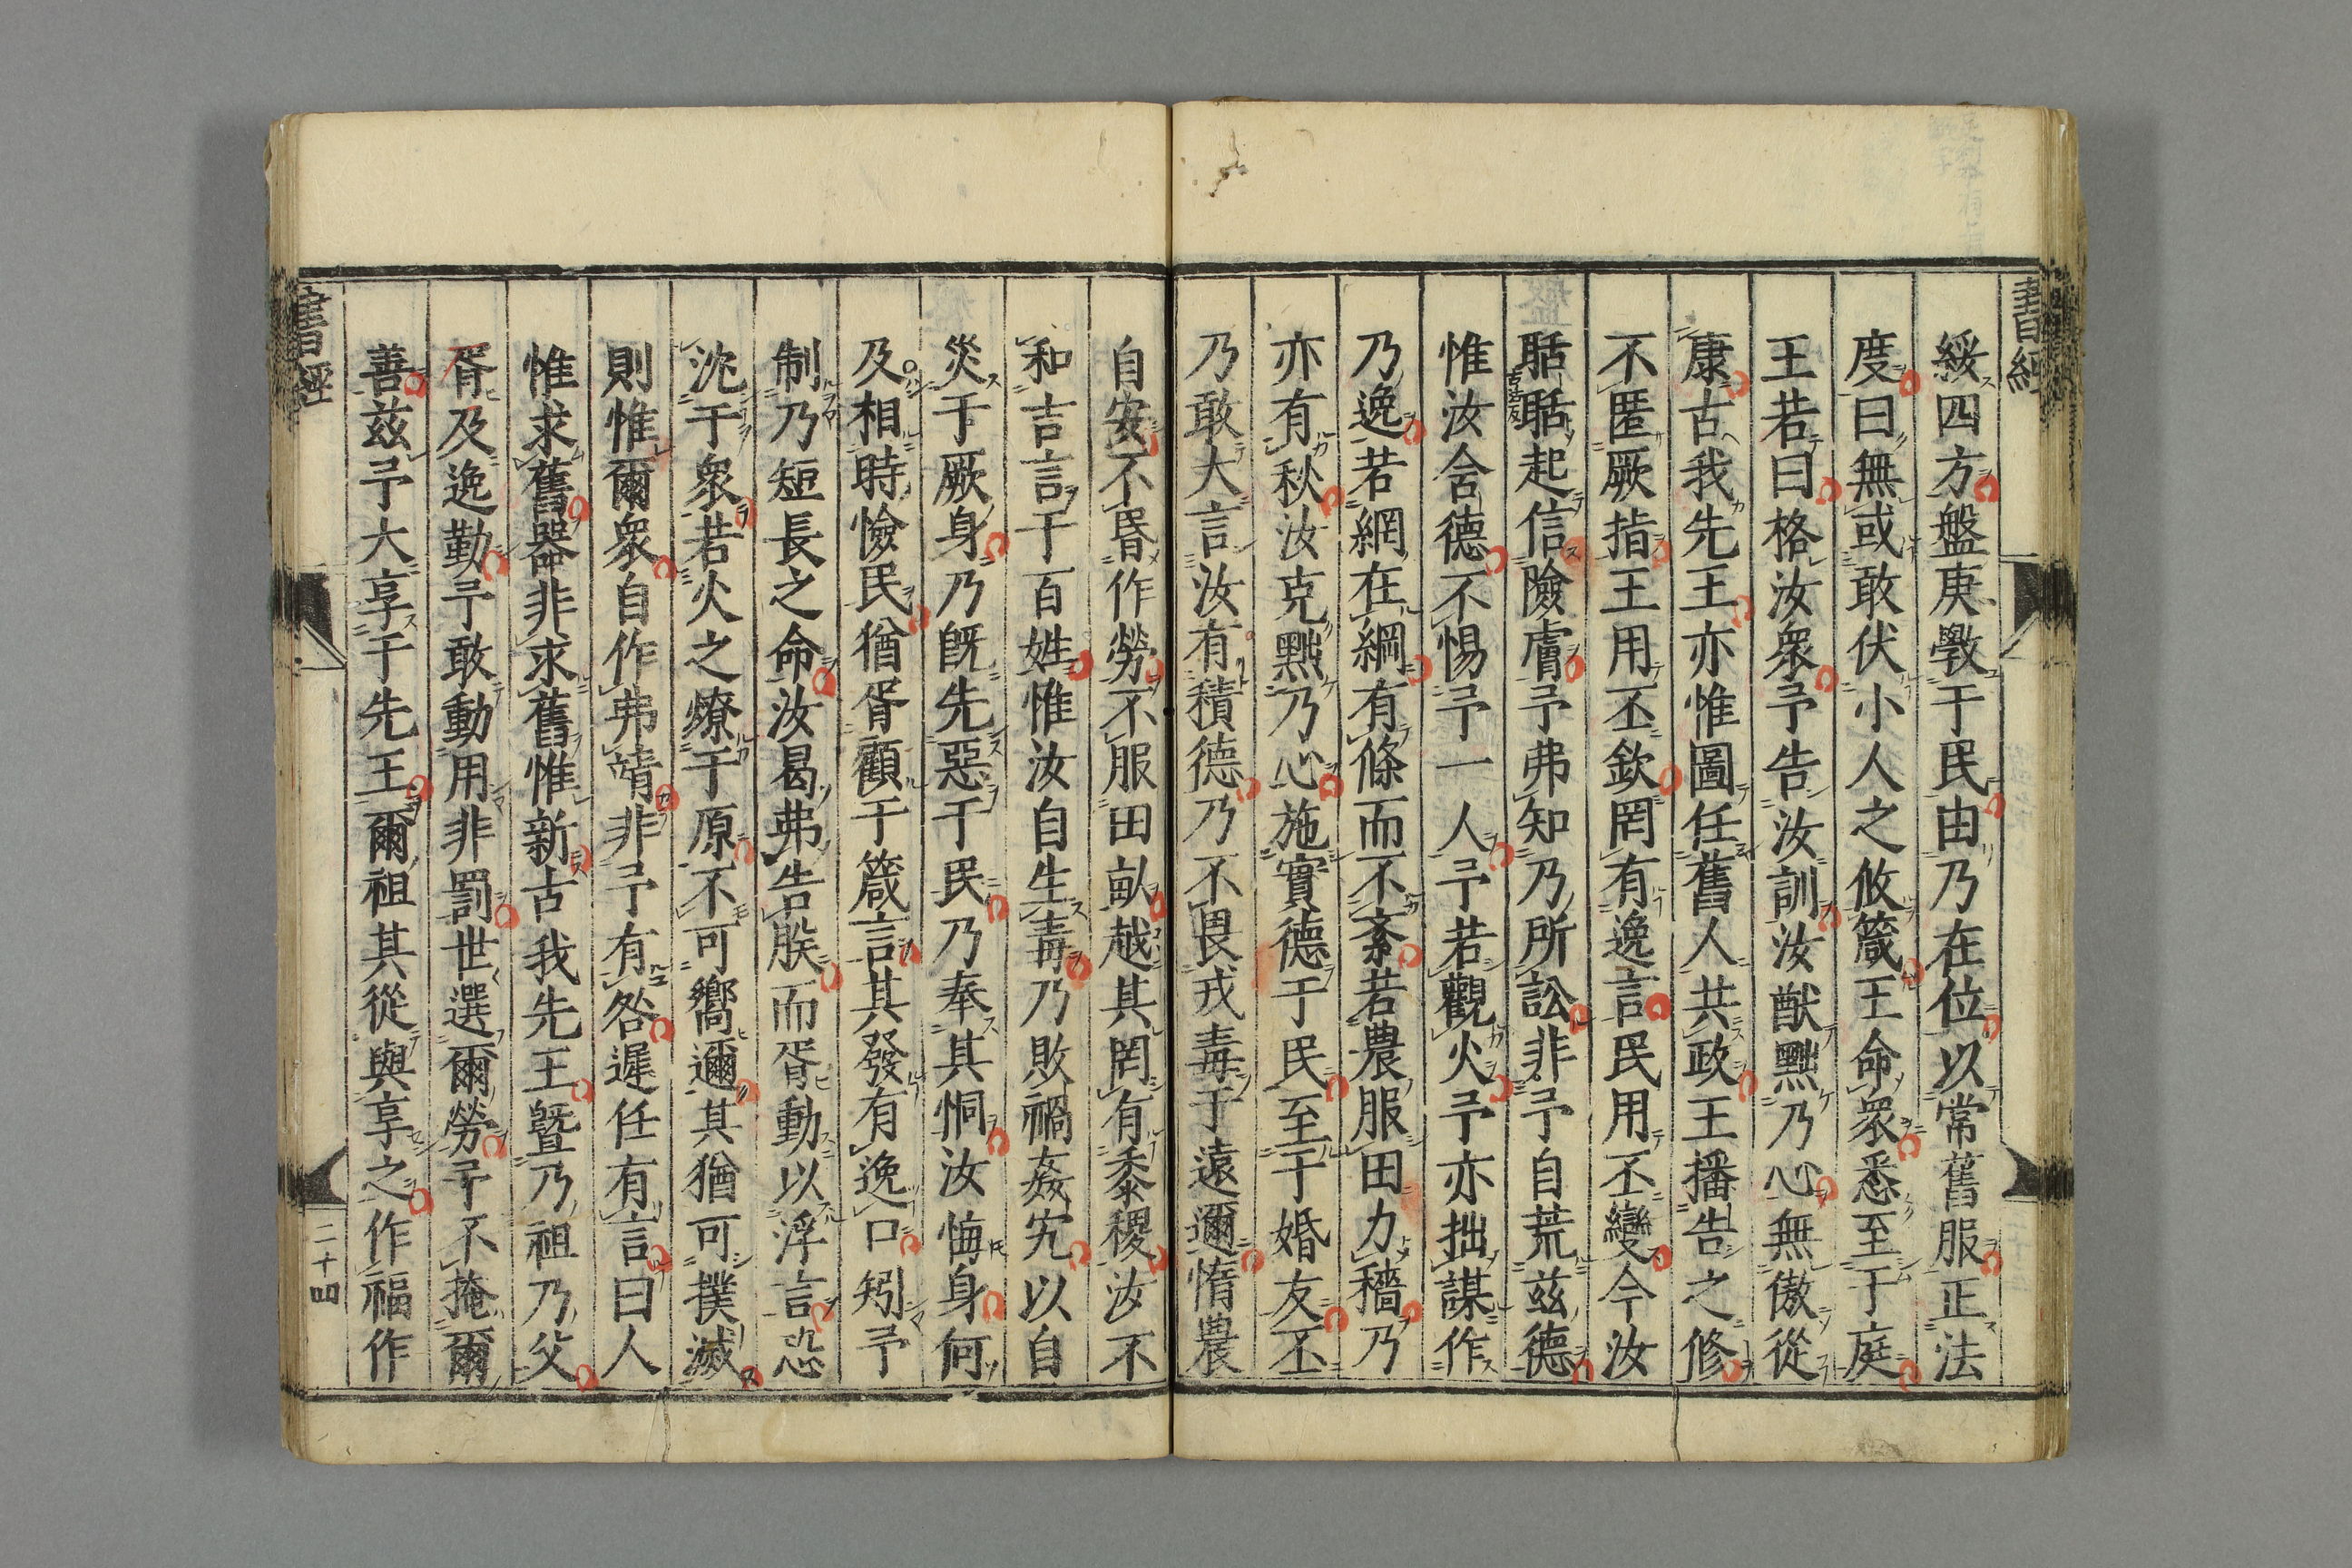 書經
綏四方盤庚斆于民由乃在位以常舊服正法
度曰無或敢伏小人之攸箴王命衆悉至于庭
王若曰格汝衆予告汝訓汝猷黜乃心無傲從
康古我先王亦惟圖任舊人共政王播告之修
不匿厥指王用丕欽罔有逸言民用丕變今汝
聒聒古活反起信險膚予弗知乃所訟非予自荒兹德
惟汝含德不惕予一人予若觀火予亦拙謀作
乃逸若網在綱有條而不紊若農服田力穡乃
亦有秋汝克黜乃心施實德于民至于婚友丕
乃敢大言汝有積德乃不畏戎毒于遠邇惰農
自安不昬作勞不服田畝越其罔有黍稷汝不
和吉言于百姓惟汝自生毒乃敗禍姦宄以自
災于厥身乃旣先惡于民乃奉其恫汝悔身何
及相時憸民猶胥顧于箴言其發有逸口矧予
制乃短長之命汝曷弗告朕而胥動以浮言恐
沈于衆若火之燎于原不可嚮邇其猶可撲滅
則惟爾衆自作弗靖非予有咎遲任有言曰人
惟求舊器非求舊惟新古我先王曁乃祖乃父
胥及逸勤予敢動用非罰世選爾勞予不掩爾
善兹予大享于先王爾祖其從與享之作福作
書經
二十四